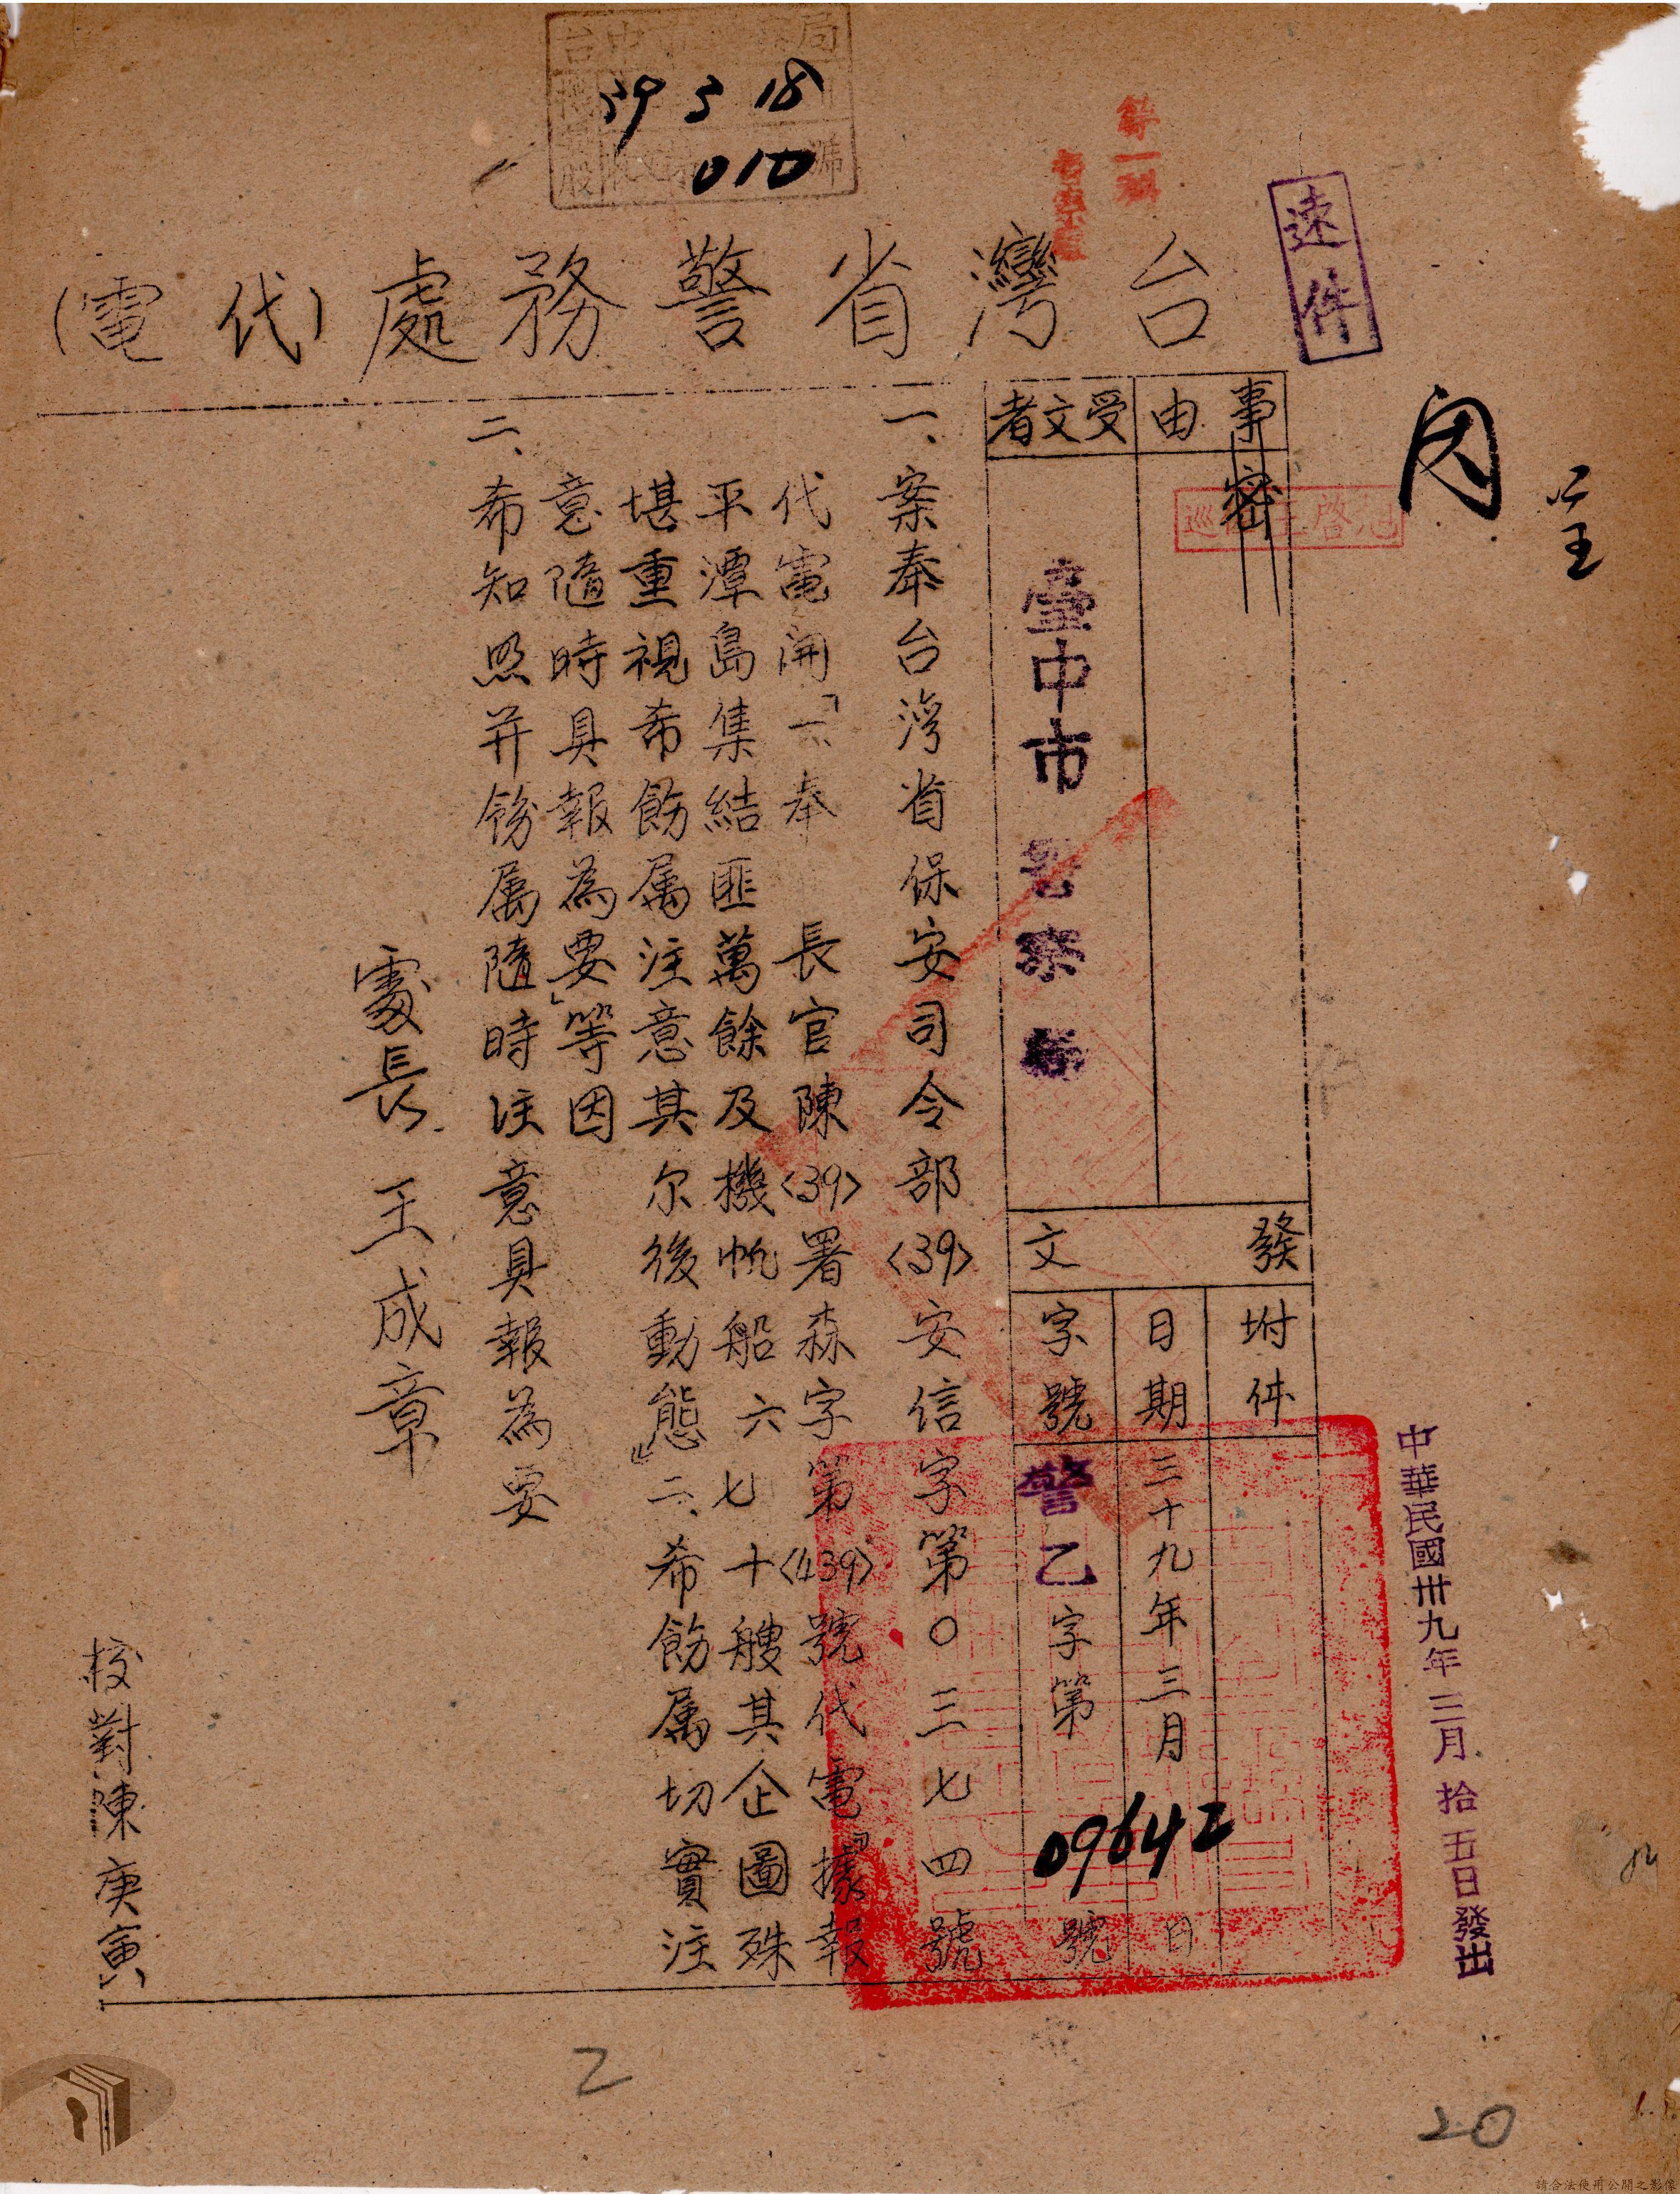 39 3 18
010
速件
台灣省警務處(代電)
閱
事由
密
受文者
臺中市警察局
發文
附件
日期
三十九年三月 日
字號
警乙字第09642號
中華民國卅九年三月拾五日發出
一、案奉台湾省保安司令部<39>安信字第〇三七四號
代電開「一、奉 長官陳<39>署森字第<439>號代電『據報
平潭島集結匪萬餘及機帆船六七十艘其企圖殊
堪重視希飭属注意其尔後動態』二、希飭属切實注
意隨時具報為要」等因
二、希知照并飭属隨時注意具報為要
處長 王成章
校對陳庚寅
2
20
請合法使用公開之影像